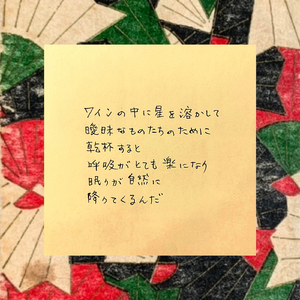 ワインの中に星を溶かして
曖昧なものたちのために
乾杯すると
呼吸がとても楽になり
眠りが自然に
降りてくるんだ